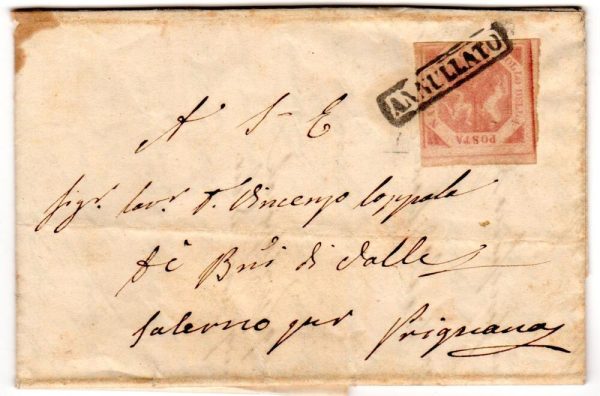 ANNULLATO
BOLLO DELLA
POSTA
A S. E.
Sigr. Cavr. D. Vincenzo Coppola
de' Bni di Valle
Salerno per Prignano